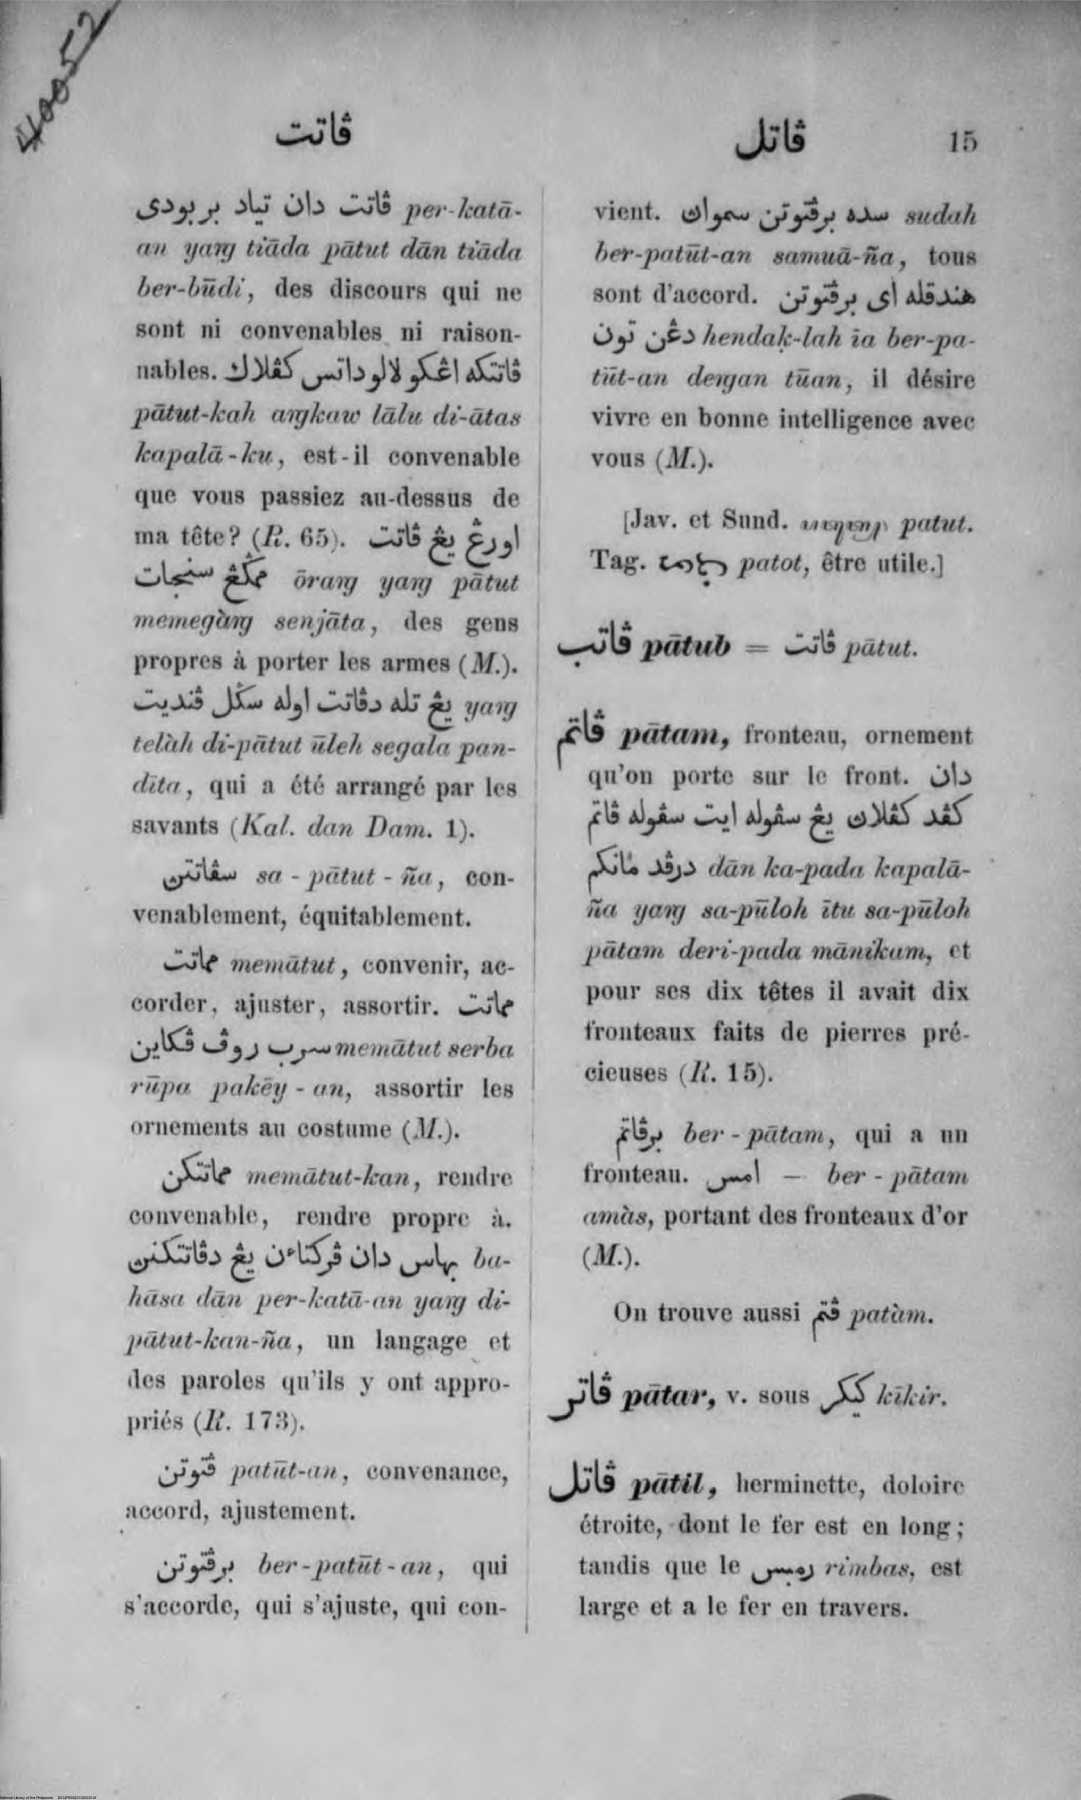 40052
ڤاتت
ڤاتل 15
ڤاتت دان تياد بر بودى per-katā-
an yang tiāda pātut dān tiāda
ber-būdi, des discours qui ne
sont ni convenables ni raison-
nables. ڤاتتكه اڠكو لالو داتس كڤلاك
pātut-kah angkaw lālu di-ātas
kapalā-ku, est-il convenable
que vous passiez au-dessus de
ma tête? (R. 65). اورڠ يڠ ڤاتت
ممڬڠ سنجات ōrang yang pātut
memegàng senjāta, des gens
propres à porter les armes (M.).
يڠ تله دڤاتت اوله سڬل ڤنديت yang
telàh di-pātut ūleh segala pan-
dīta, qui a été arrangé par les
savants (Kal. dan Dam. 1).
سڤاتتن sa-pātut-ña, con-
venablement, équitablement.
مماتت memātut, convenir, ac-
corder, ajuster, assortir. مماتت
سرب روڤ ڤكاين memātut serba
rūpa pakēy-an, assortir les
ornements au costume (M.).
مماتتكن memātut-kan, rendre
convenable, rendre propre à.
بهاس دان ڤركتاءن يڠ دڤاتتكنن ba-
hāsa dān per-katā-an yang di-
pātut-kan-ña, un langage et
des paroles qu'ils y ont appro-
priés (R. 173).
ڤتوتن patūt-an, convenance,
accord, ajustement.
برڤتوتن ber-patūt-an, qui
s'accorde, qui s'ajuste, qui con-
vient. سده برڤتوتن سموان sudah
ber-patūt-an samuā-ña, tous
sont d'accord. هندقله اى برڤتوتن
دڠن تون hendaḳ-lah īa ber-pa-
tūt-an dengan tūan, il désire
vivre en bonne intelligence avec
vous (M.).
[Jav. et Sund. patut.
Tag. patot, être utile.]
ڤاتب pātub = ڤاتت pātut.
ڤاتم pātam, fronteau, ornement
qu'on porte sur le front. دان
كڤد كڤلان يڠ سڤوله ايت سڤوله ڤاتم
درڤد مانكم dān ka-pada kapalā-
ña yang sa-pūloh ītu sa-pūloh
pātam deri-pada mānikam, et
pour ses dix têtes il avait dix
fronteaux faits de pierres pré-
cieuses (R. 15).
برڤاتم ber-pātam, qui a un
fronteau. امس — ber-pātam
amàs, portant des fronteaux d'or
(M.).
On trouve aussi ڤتم patàm.
ڤاتر pātar, v. sous كيكر kīkir.
ڤاتل pātil, herminette, doloire
étroite, dont le fer est en long;
tandis que le رمبس rimbas, est
large et a le fer en travers.